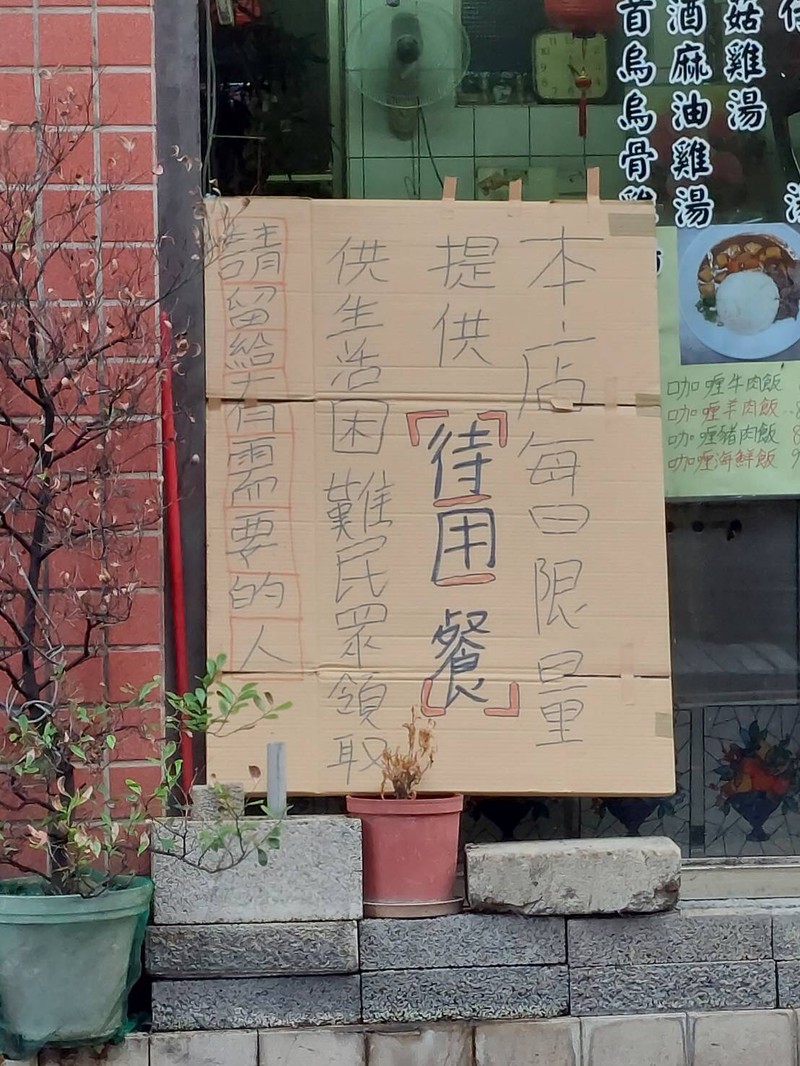 本店每日限量
提供
「待用餐」
供生活困難民眾領取
請留給有需要的人
姑雞湯
酒麻油雞湯
首烏烏骨雞
咖喱牛肉飯
咖喱羊肉飯
咖喱豬肉飯
咖喱海鮮飯